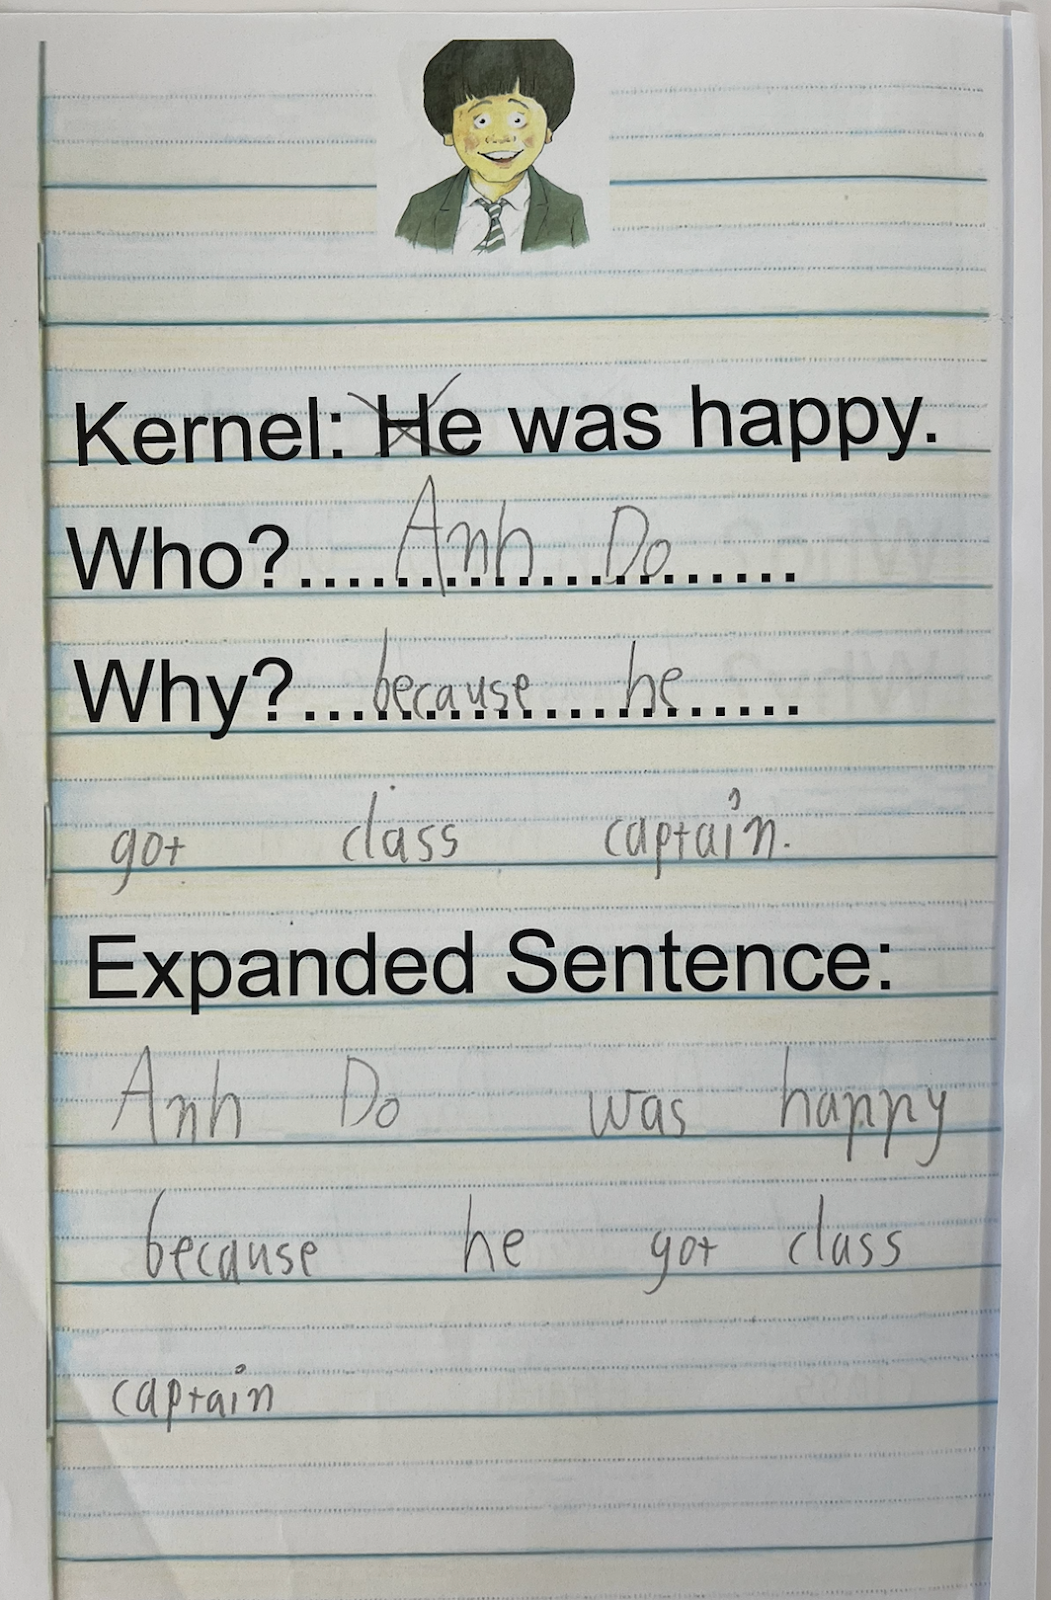 Kernel: He was happy.
Who?...................... Anh Do
Why?...................... because he
got class captain.
Expanded Sentence:
Anh Do was happy
because he got class
captain